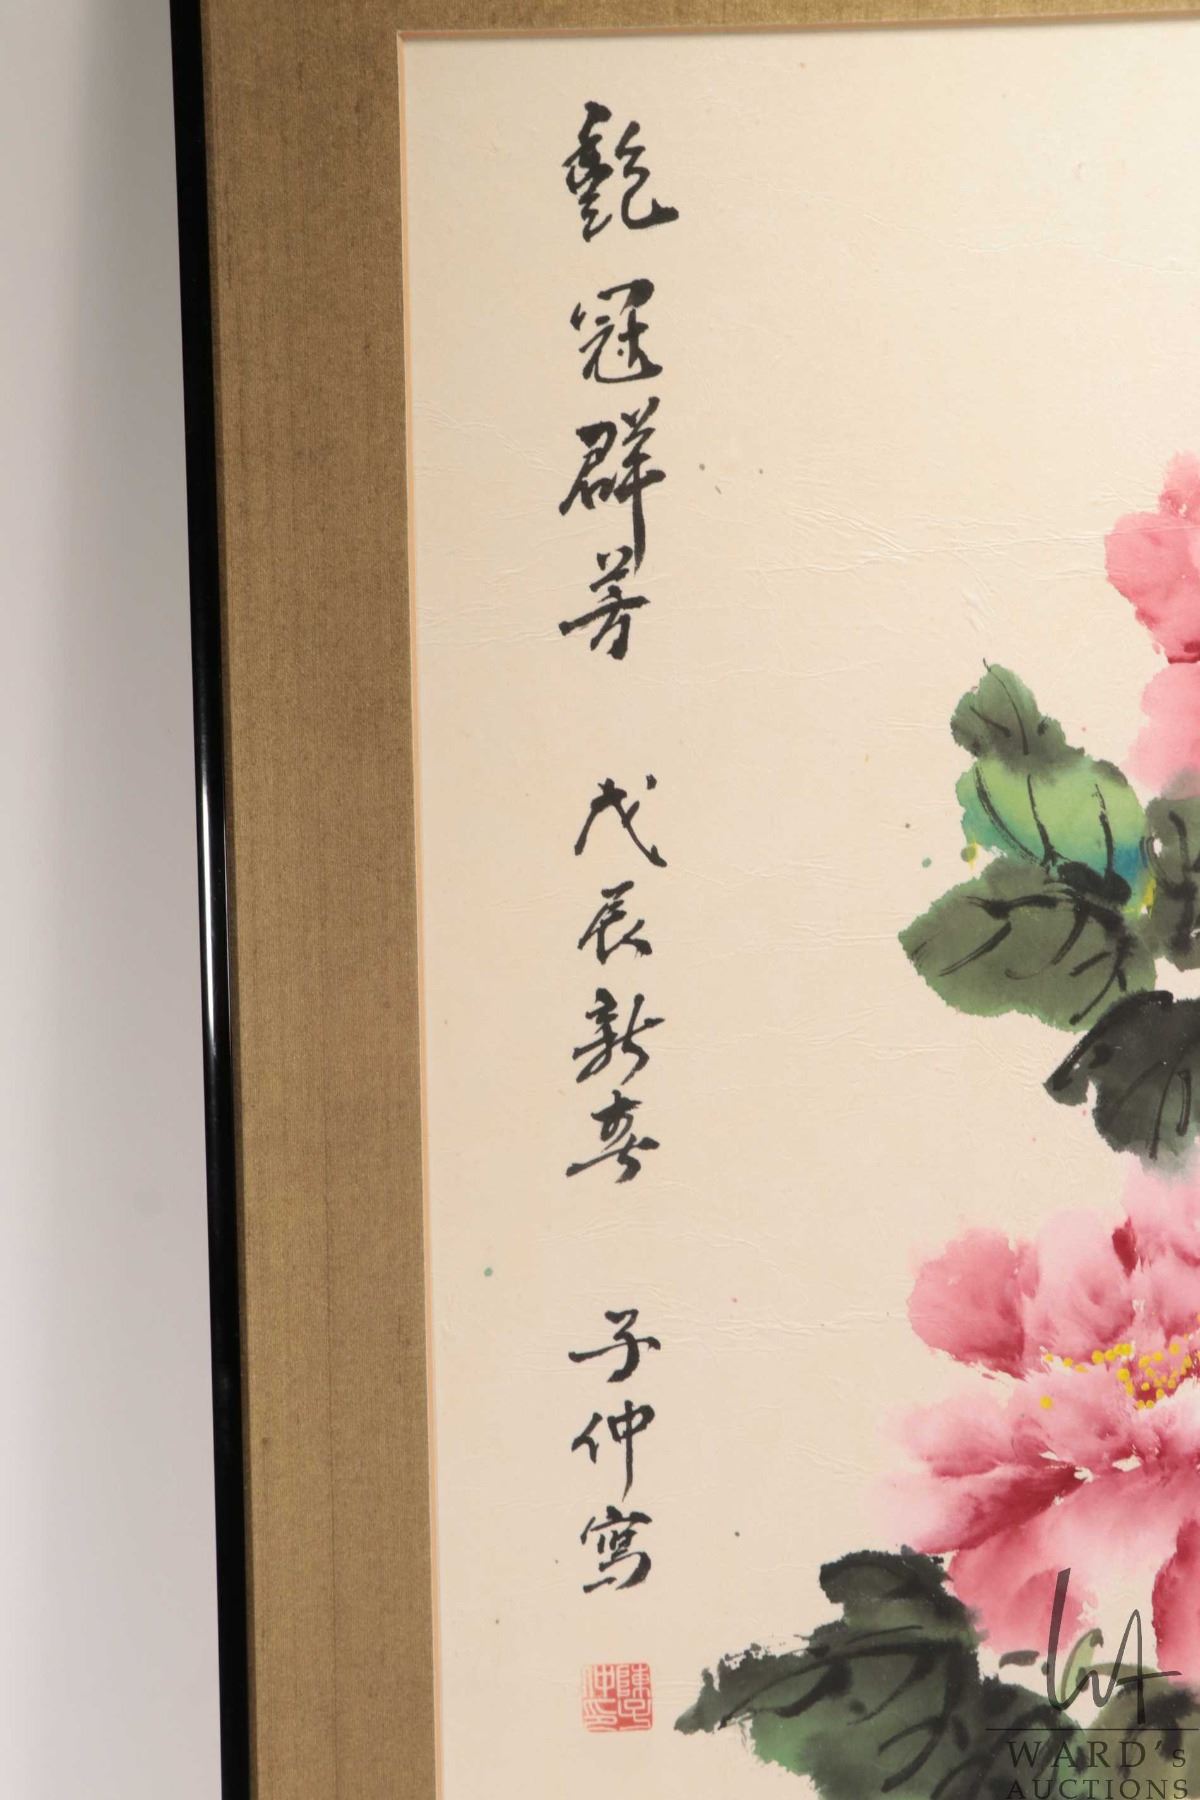 艷冠群芳 戊辰新春 子仲寫
陳子仲印
WARD's
AUCTIONS